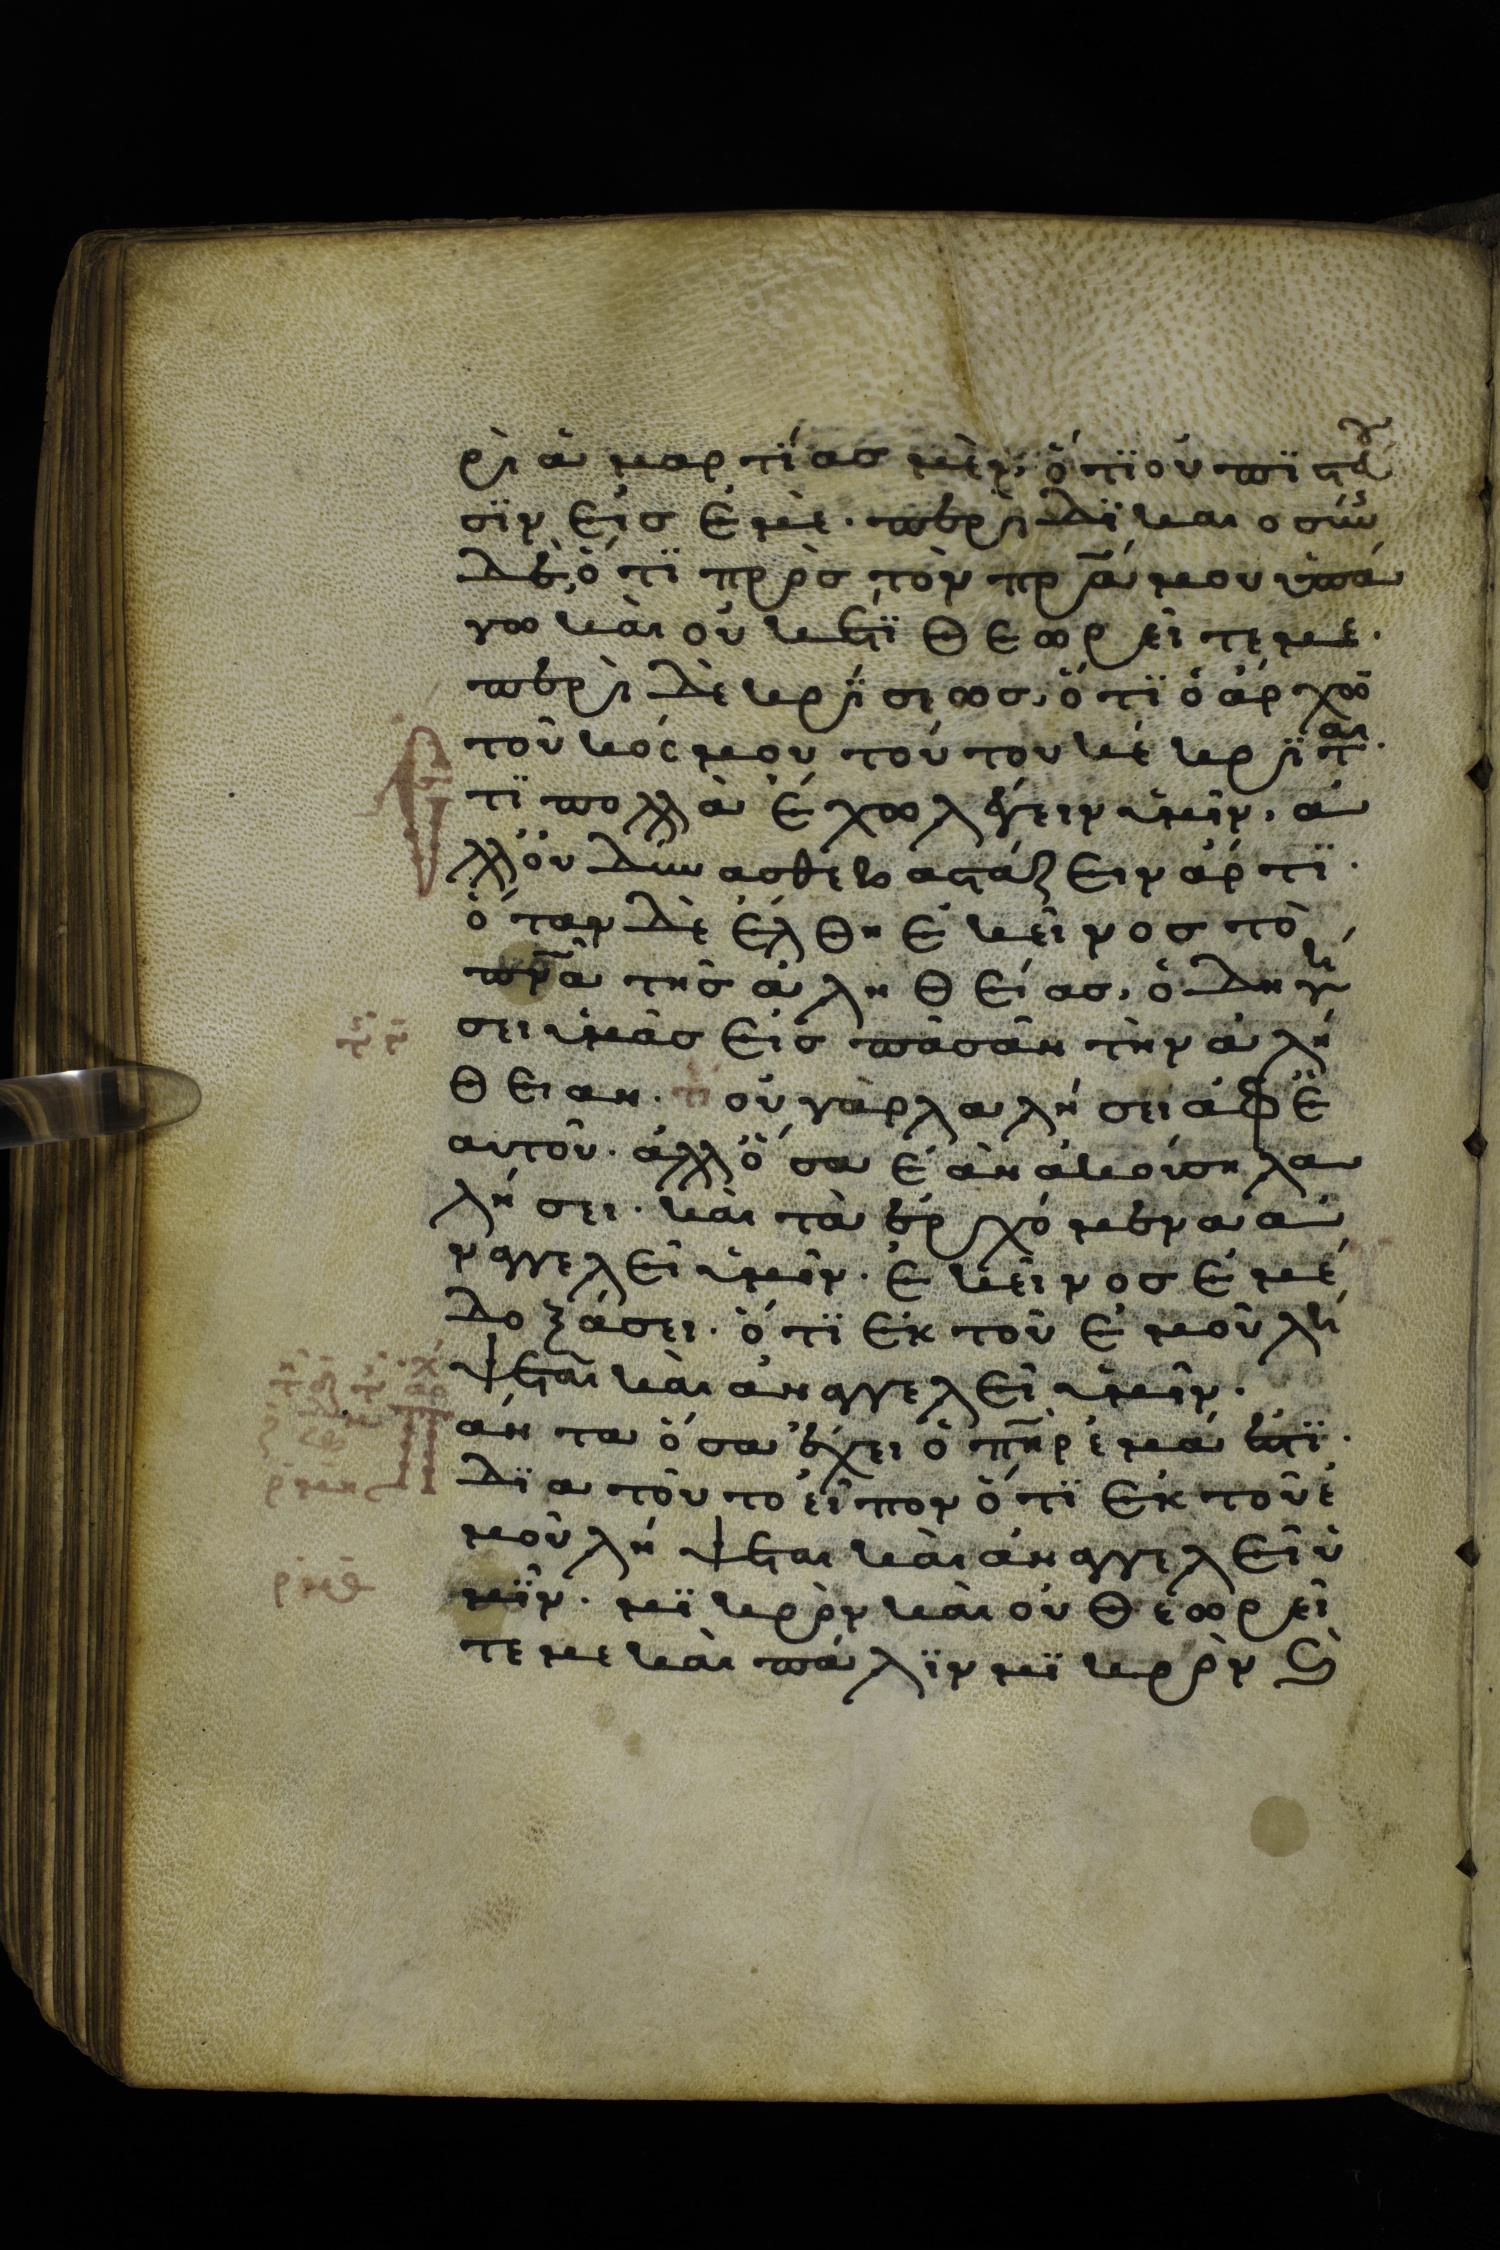 ρὶ ἁμαρτίας μὲν, ὅτϊ οὐ πϊστεύου
σϊν εἰς ἐμέ. περὶ δϊκαιοσύνης
δὲ, ὅτϊ πρὸς τὸν πρ̅α μου ὑπά
γω καὶ οὐκέτϊ θεωρεῖτε με.
περὶ δὲ κρΐσεως, ὅτϊ ὁ ἄρχων
τοῦ κόσμου τούτου κέκρϊται.
Ἔτϊ πολλὰ ἔχω λέγειν ὑμῖν, ἀ
λλ' οὐ δύνασθε βαστάζειν ἄρτϊ.
ὅταν δὲ ἔλθη ἐκεῖνος τὸ
πν̅α τῆς ἀληθείας, ὁδηγή
σει ὑμᾶς εἰς πᾶσαν τὴν ἀλή
θειαν. οὐ γὰρ λαλήσει ἀφ' ἑ
αυτοῦ. ἀλλ' ὅσα ἐὰν ἀκούση λα
λήσει. καὶ τὰ ἐρχόμενα ἀ
ναγγελεῖ ὑμῖν. ἐκεῖνος ἐμὲ
δοξάσει. ὅτϊ ἐκ τοῦ ἐμοῦ λή
ψεται καὶ ἀναγγελεῖ ὑμῖν.
Πάντα ὅσα ἔχει ὁ πη̅ρ ἐμά ἐστϊ.
δϊα τοῦτο εἶπον ὅτϊ ἐκ τοῦ ἐ
μοῦ λήψεται καὶ ἀναγγελεῖ ὑ
μϊν. μϊκρὸν καὶ οὐ θεωρεῖ
τε με καὶ πάλϊν μϊκρὸν καὶ